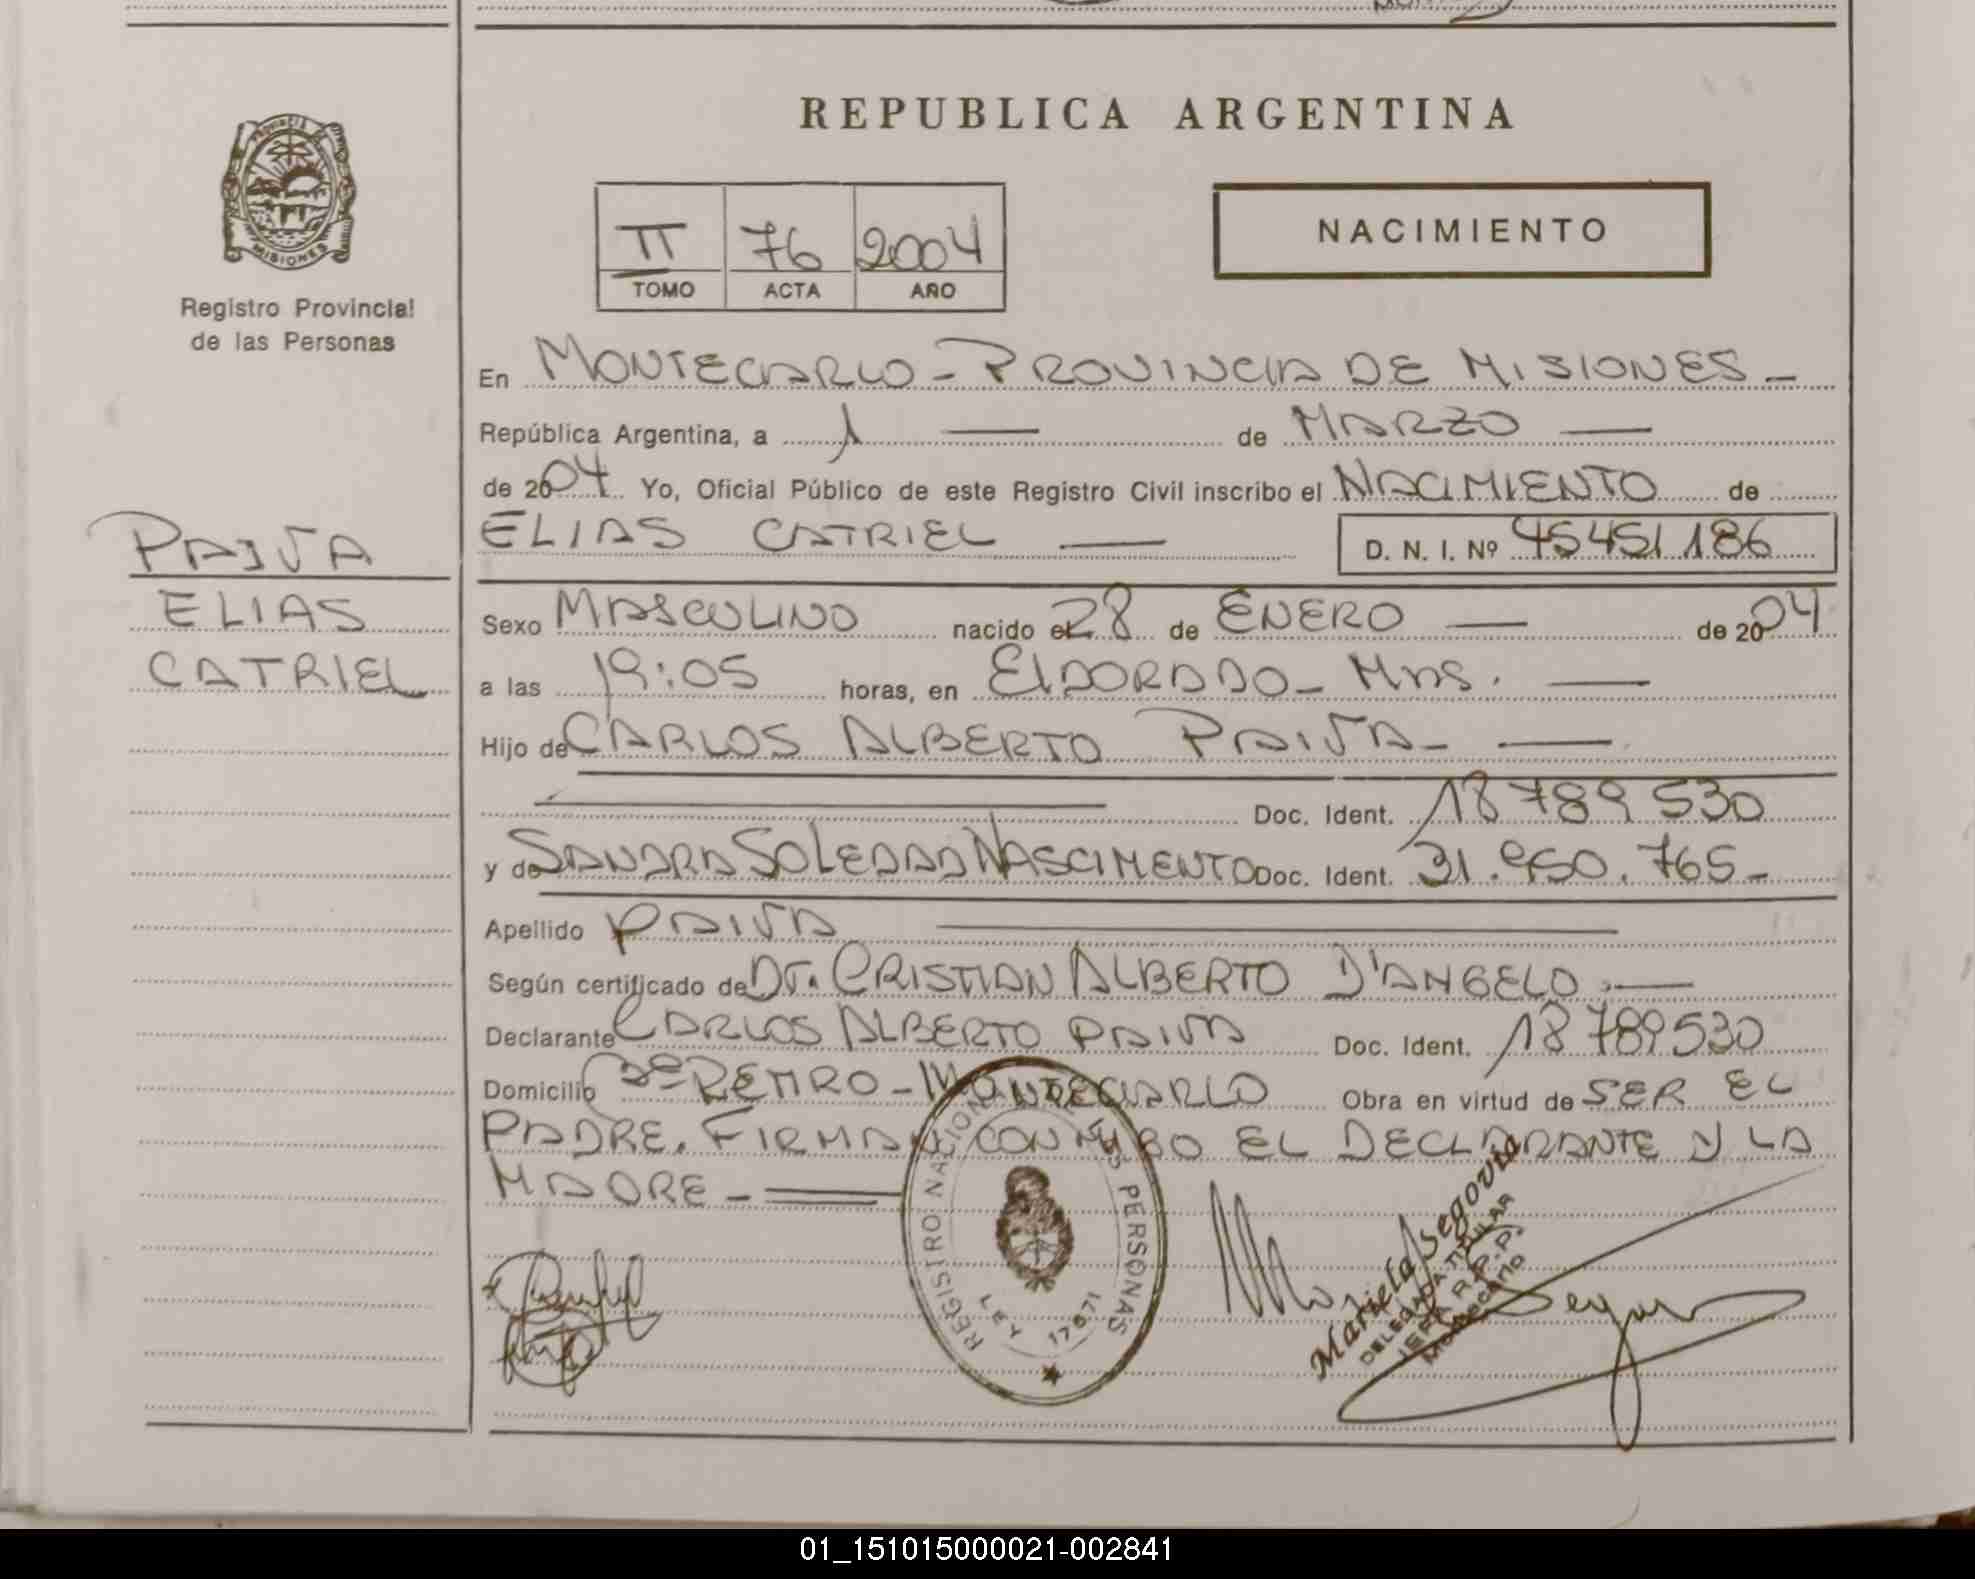 REPUBLICA ARGENTINA
PROVINCIA DE
MISIONES
Registro Provincial
de las Personas
II 76 2004
TOMO ACTA AÑO
NACIMIENTO
En MONTECARLO - PROVINCIA DE MISIONES -
República Argentina, a 1 — de MARZO —
de 2004 Yo, Oficial Público de este Registro Civil inscribo el NACIMIENTO de
PAIVA
ELIAS CATRIEL — D. N. I. Nº 45451186
ELIAS
CATRIEL
Sexo MASCULINO nacido el 28 de ENERO — de 2004
a las 19:05 horas, en ElDORADO - Mnes. —
Hijo de CARLOS ALBERTO PAIVA - —
Doc. Ident. 18 789 530
y de SANDRA SOLEDAD NASCIMENTO Doc. Ident. 31.950.765 -
Apellido PAIVA
Según certificado de Dr. CRISTIAN ALBERTO D'ANGELO . —
Declarante CARLOS ALBERTO PAIVA Doc. Ident. 18 789530
Domicilio MONTECARLO Obra en virtud de SER EL
PADRE. FIRMAN CONMIGO EL DECLARANTE Y LA
MADRE -
REGISTRO NACIONAL DE LAS PERSONAS
LEY 17671
Mariela Segovia
DELEGADA TITULAR
R.P.P.
Montecarlo
01_151015000021-002841